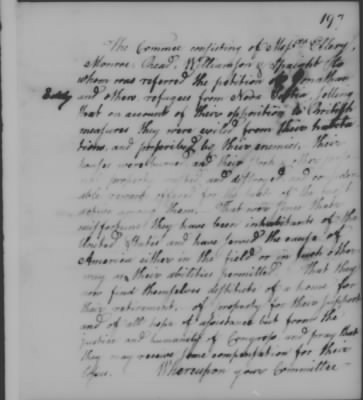 197
The Commee consisting of Messrs Ellery,
Monroe, Read, Williamson & Spaight to
whom was referred the petition of Jonathan
Eddy and others refugees from Nova Scotia, setting
that on account of their opposition to British
measures they were exiled from their habita
tions, and proscribed by their enemies, their
houses were burned and their stock & other
property and destroyed and a
reward offered for the
among them. That ever since their
misfortunes they have been inhabitants of the
United States and have served the cause of
America either in the field or in such other
way as their abilities permitted. That they
now find themselves destitute of a home for
their retirement, of property for their support
and of all hope of assistance but from the
justice and humanity of Congress and pray that
they may receive some compensation for their
Whereupon your Committee